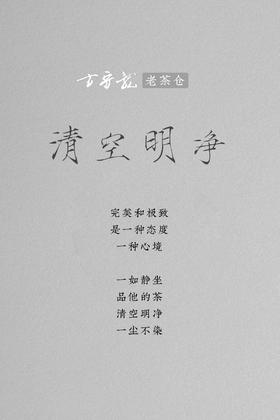 古寄龙 老茶仓
清空明净
完美和极致
是一种态度
一种心境
一如静坐
品他的茶
清空明净
一尘不染